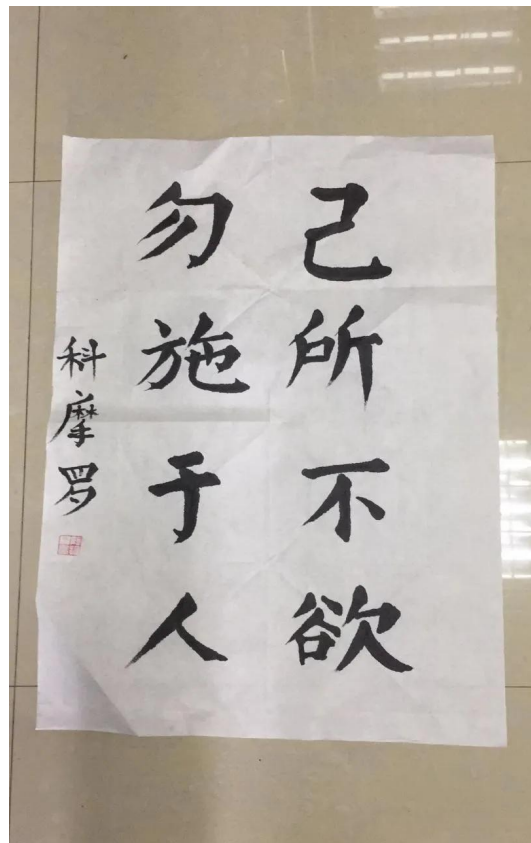 己所不欲
勿施于人
科摩罗